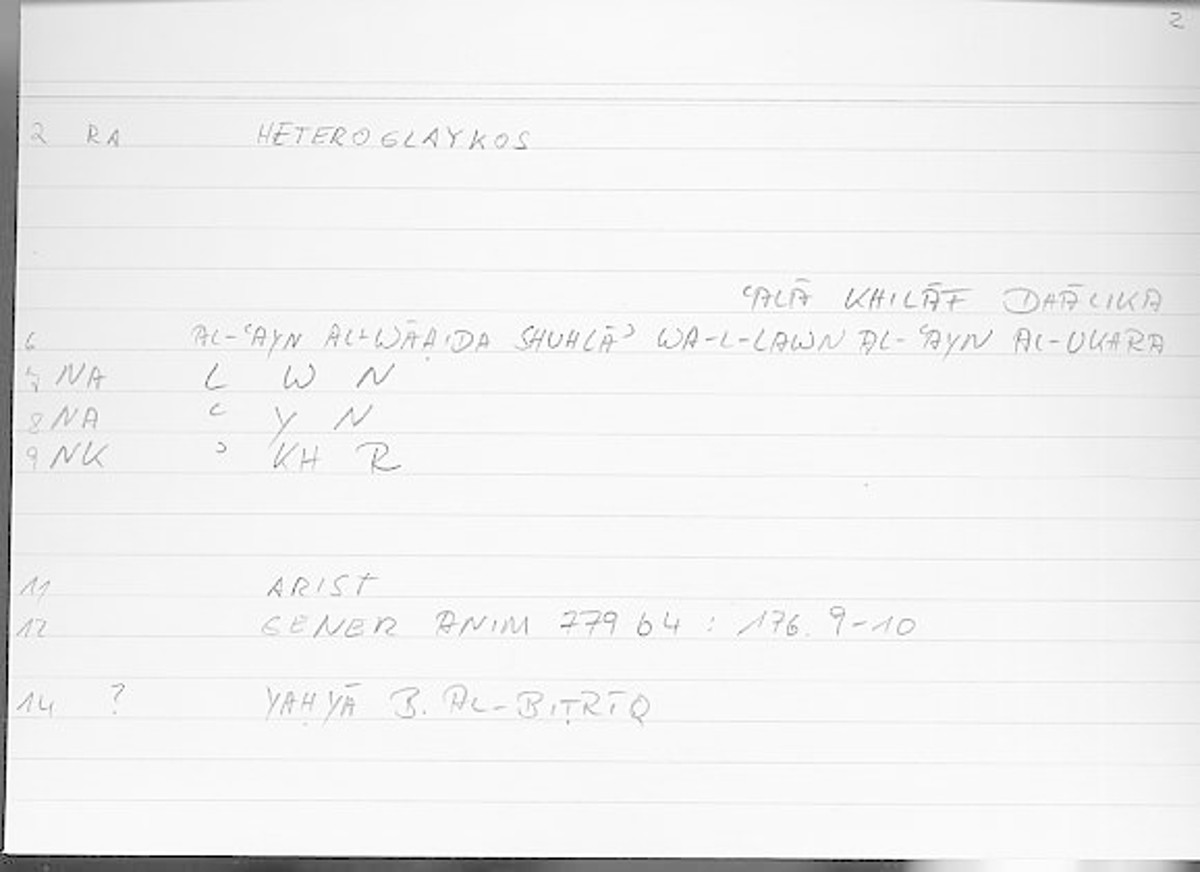 2
2 RA HETEROGLAYKOS
ʿALĀ KHILĀF DAĀLIKA
6 AL-ʿAYN AL-WĀAḤIDA SHUHLĀʾ WA-L-LAWN AL-ʿAYN AL-UKHARA
7 NA L W N
8 NA ʿ Y N
9 NK ʾ KH R
11 ARIST
12 GENER ANIM 779 b4 : 176. 9-10
14 ? YAḤYĀ B. AL-BIṬRĪQ